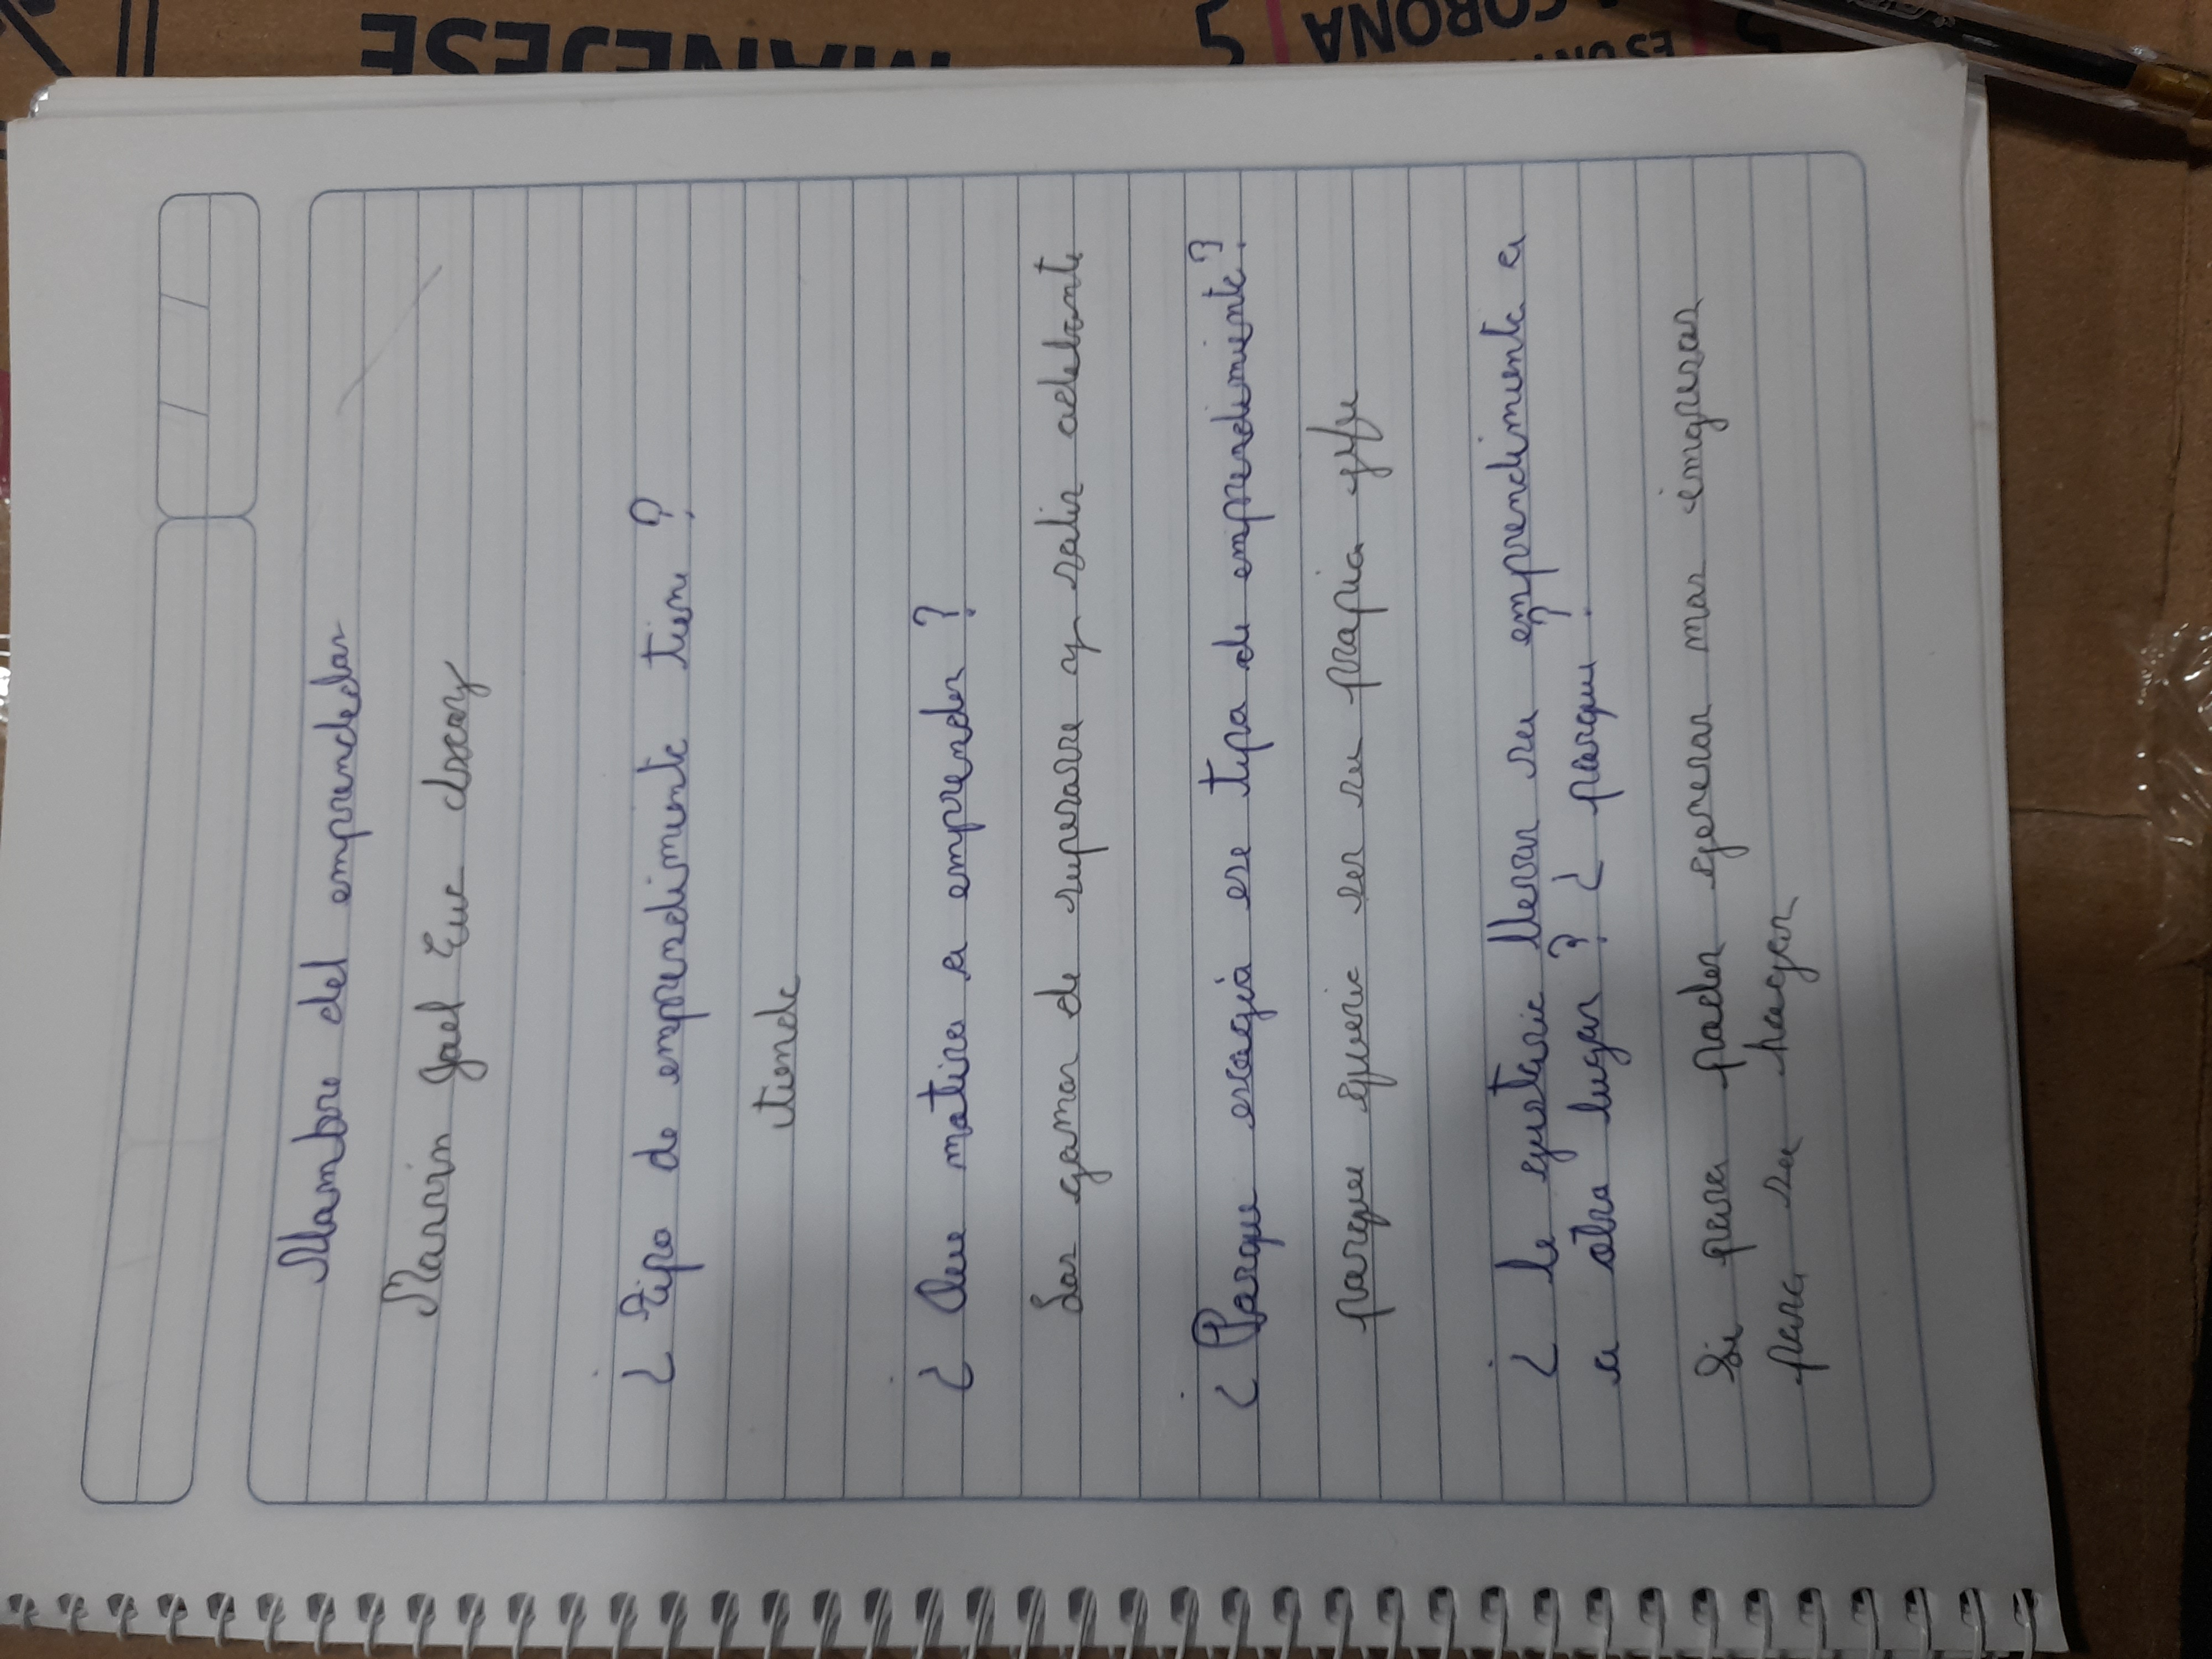 MANEJESE
5
CORONA
Nombre del emprendedor
Marvin Gael Euc
¿Tipo de emprendimiento tien?
tienda
¿Que motivo a emprender?
Las ganas de superarse y salir adelante
¿Porque escogió ese tipo de emprendimiento?
porque queria ser su propio gefe
¿le gustaria llevar su emprendimiento a
a otro lugar? ¿porque?
Si para poder generar mas ingresos
para su hogar